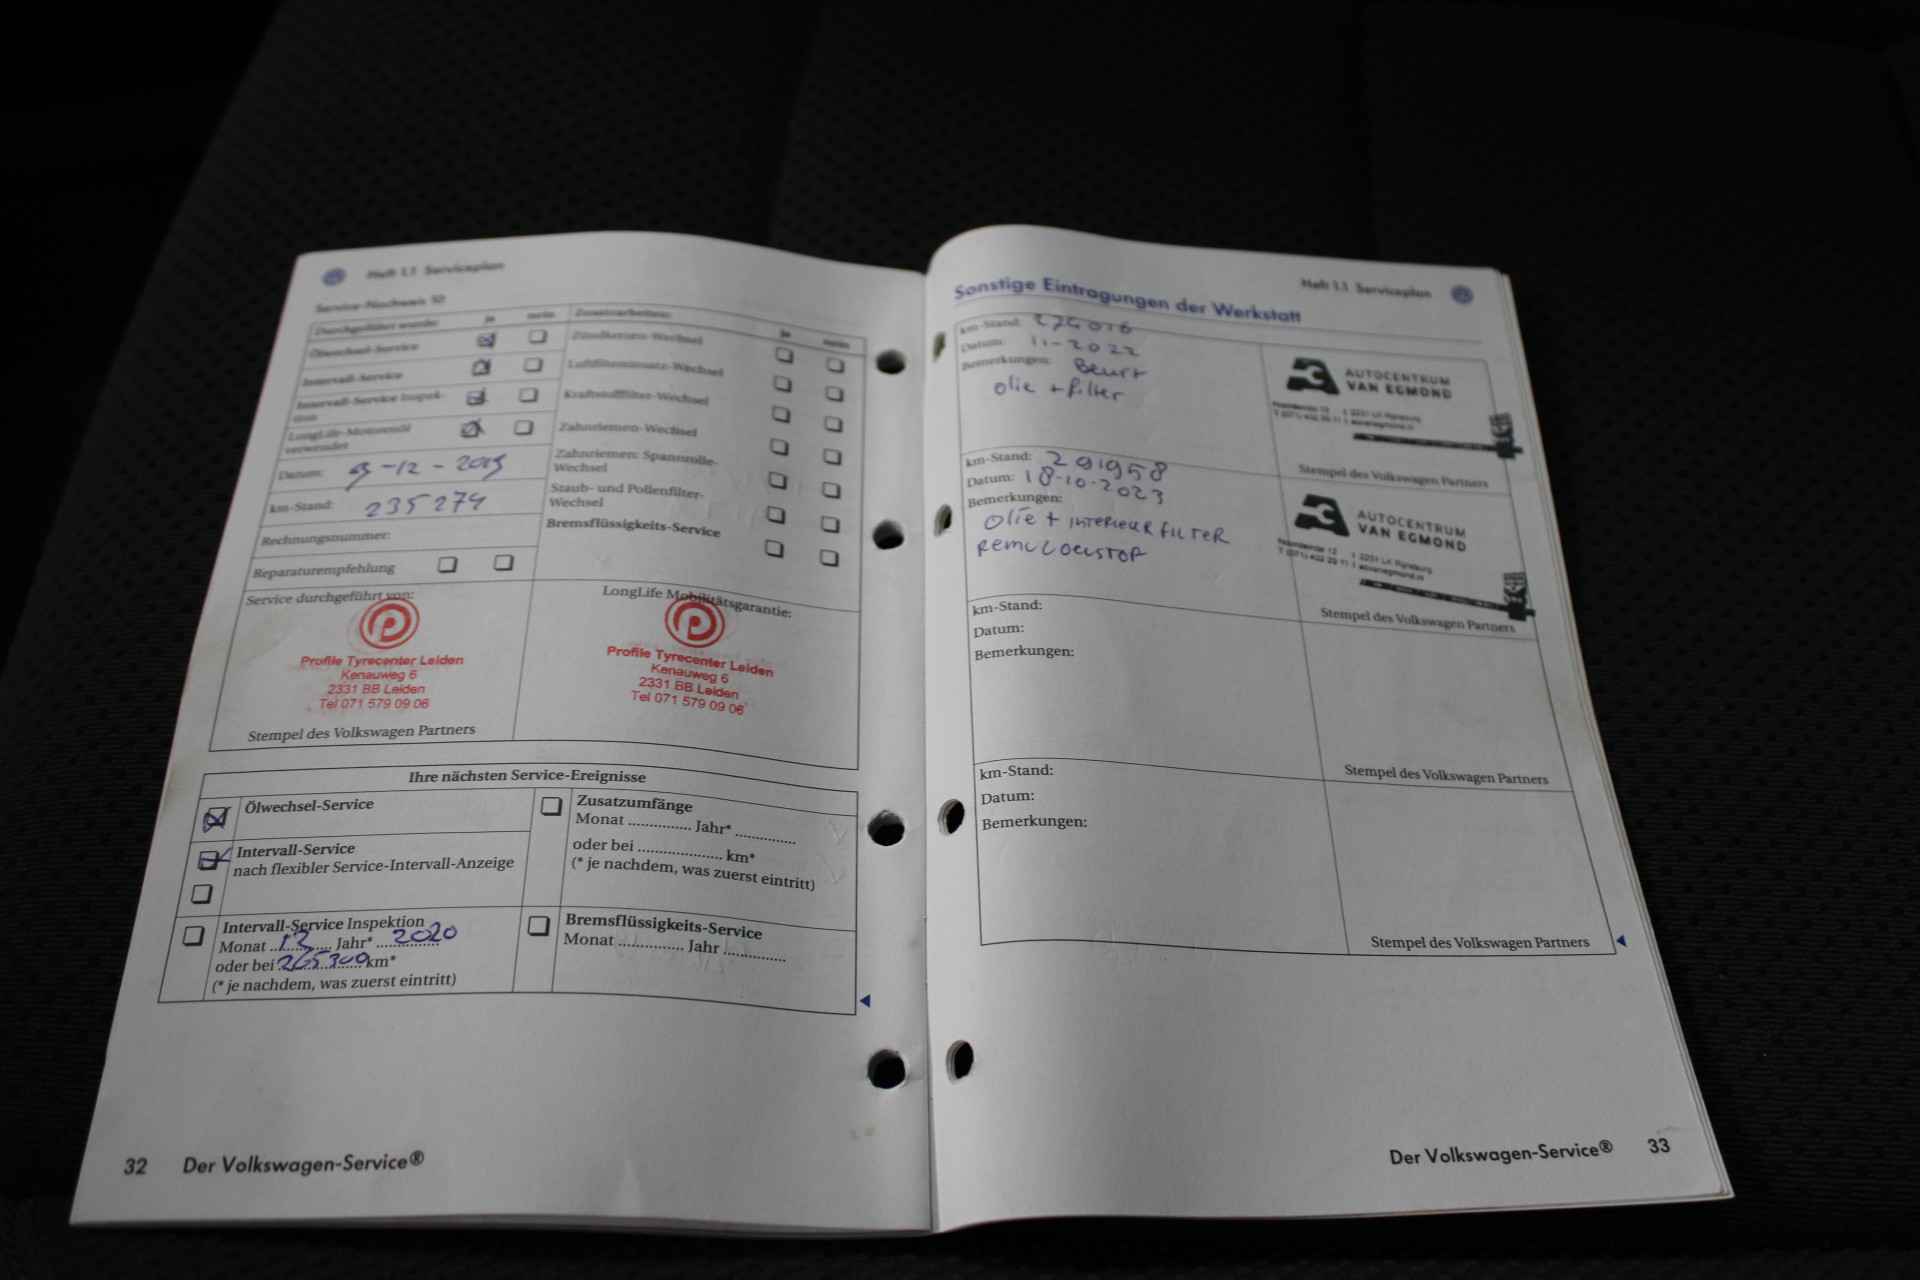 Heft 1.1 Serviceplan
Service-Nachweis 10
Durchgeführt wurde: ja nein
Ölwechsel-Service
Intervall-Service
Intervall-Service Inspek-
tion
LongLife-Motorenöl
verwendet
Datum: -12-2019
km-Stand: 235274
Rechnungsnummer:
Reparaturempfehlung
Zusatzarbeiten: ja nein
Zündkerzen-Wechsel
Luftfiltereinsatz-Wechsel
Kraftstofffilter-Wechsel
Zahnriemen-Wechsel
Zahnriemen: Spannrolle-
Wechsel
Staub- und Pollenfilter-
Wechsel
Bremsflüssigkeits-Service
Service durchgeführt von:
Profile Tyrecenter Leiden
Kenauweg 6
2331 BB Leiden
Tel 071 579 09 06
Stempel des Volkswagen Partners
LongLife Mobilitätsgarantie:
Profile Tyrecenter Leiden
Kenauweg 6
2331 BB Leiden
Tel 071 579 09 06
Ihre nächsten Service-Ereignisse
Ölwechsel-Service
Intervall-Service
nach flexibler Service-Intervall-Anzeige
Intervall-Service Inspektion
Monat 12 Jahr* 2020
oder bei 265300 km*
(* je nachdem, was zuerst eintritt)
Zusatzumfänge
Monat ............... Jahr* ..............
oder bei .................... km*
(* je nachdem, was zuerst eintritt)
Bremsflüssigkeits-Service
Monat ............... Jahr ..............
32 Der Volkswagen-Service®
Heft 1.1 Serviceplan
Sonstige Eintragungen der Werkstatt
km-Stand: 276016
Datum: 11-2022
Bemerkungen: Beurt
olie + filter
AUTOCENTRUM
VAN EGMOND
Stempel des Volkswagen Partners
km-Stand: 291958
Datum: 18-10-2023
Bemerkungen:
olie + INTERIEUR FILTER
REMVLOEISTOF
AUTOCENTRUM
VAN EGMOND
Stempel des Volkswagen Partners
km-Stand:
Datum:
Bemerkungen:
Stempel des Volkswagen Partners
km-Stand:
Datum:
Bemerkungen:
Stempel des Volkswagen Partners
Der Volkswagen-Service® 33